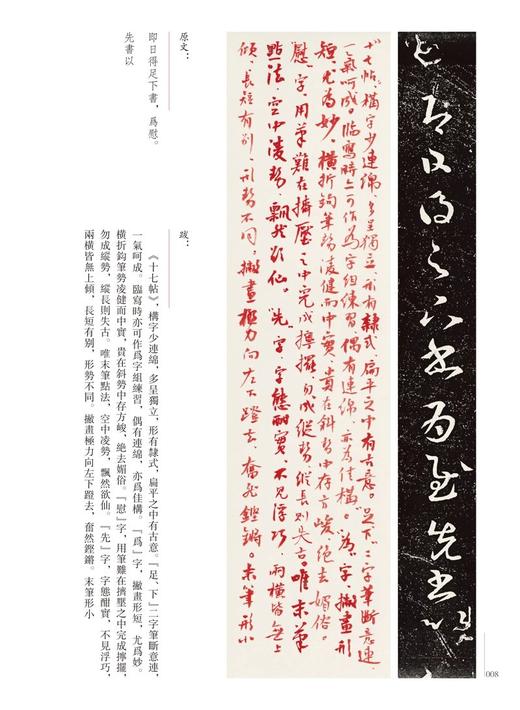 即日得足下書爲慰先書以
十七帖，構字少連綿，多呈獨立，形有隸式，扁平之中有古意。足、下二字筆斷意連，
一氣呵成。臨寫時亦可作為字組練習，偶有連綿，亦為佳構。為字，撇畫形
短，尤為妙。橫折鉤筆勢凌健而中實，貴在斜勢中存方峻，絕去媚俗。
慰字，用筆難在擠壓之中完成擰擺，勿成縱勢，縱長則失古。唯末筆
點法，空中凌勢，飄然欲仙。先字，字態酣實，不見浮巧，兩橫皆無上
傾，長短有別，形勢不同。撇畫極力向左下蹬去，奮然鏗鏘。末筆形小
原文：
即日得足下書，爲慰。
先書以
跋：
《十七帖》，構字少連綿，多呈獨立，形有隸式，扁平之中有古意。『足、下』二字筆斷意連，
一氣呵成。臨寫時亦可作爲字組練習，偶有連綿，亦爲佳構。『爲』字，撇畫形短，尤爲妙。
橫折鈎筆勢凌健而中實，貴在斜勢中存方峻，絕去媚俗。『慰』字，用筆難在擠壓之中完成擰擺，
勿成縱勢，縱長則失古。唯末筆點法，空中凌勢，飄然欲仙。『先』字，字態酣實，不見浮巧，
兩橫皆無上傾，長短有別，形勢不同。撇畫極力向左下蹬去，奮然鏗鏘。末筆形小
008